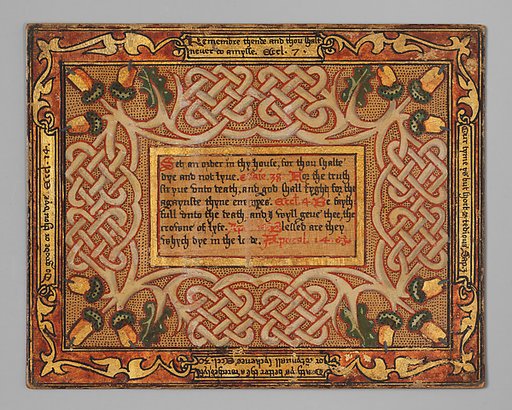 Remembre thende and thou shalt
never do amysse. Eccl. 7.
Set an order in thy house, for thou shalte
dye and not lyue. Esaie. 38. For the truth
stryue vnto death, and god shall fyght for the
agaynste thyne enymyes. Eccl. 4. Be fayth-
full vnto the death, and I wyll geue thee, the
crowne of lyfe. Blessed are they
whych dye in the lorde. Apocal. 14.
Do goode or thou dye. Eccl. 14.
Our tyme ys but short & tedious. Sap. 2.
Death ys better